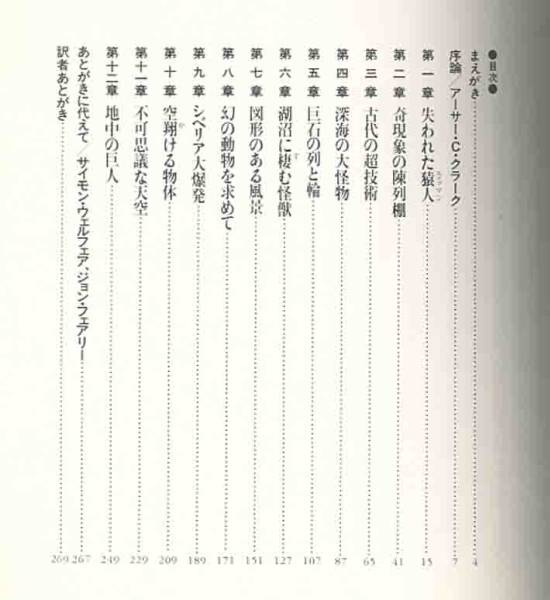 ●目次●
まえがき 4
序論／アーサー・C・クラーク 7
第一章 失われた猿人 15
第二章 奇現象の陳列棚 41
第三章 古代の超技術 65
第四章 深海の大怪物 87
第五章 巨石の列と輪 107
第六章 湖沼に棲む怪獣 127
第七章 図形のある風景 151
第八章 幻の動物を求めて 171
第九章 シベリア大爆発 189
第十章 空翔ける物体 209
第十一章 不可思議な天空 229
第十二章 地中の巨人 249
あとがきに代えて／サイモン・ウェルフェア、ジョン・フェアリー 267
訳者あとがき 269